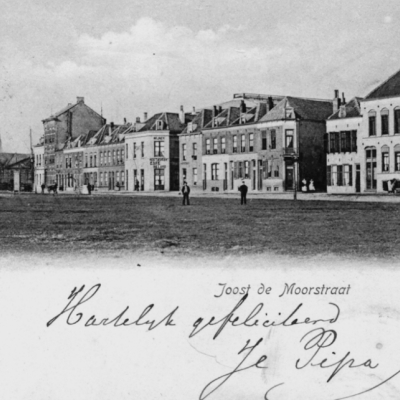 Joost de Moorstraat
Hartelijk gefeliciteerd
Je Pipa